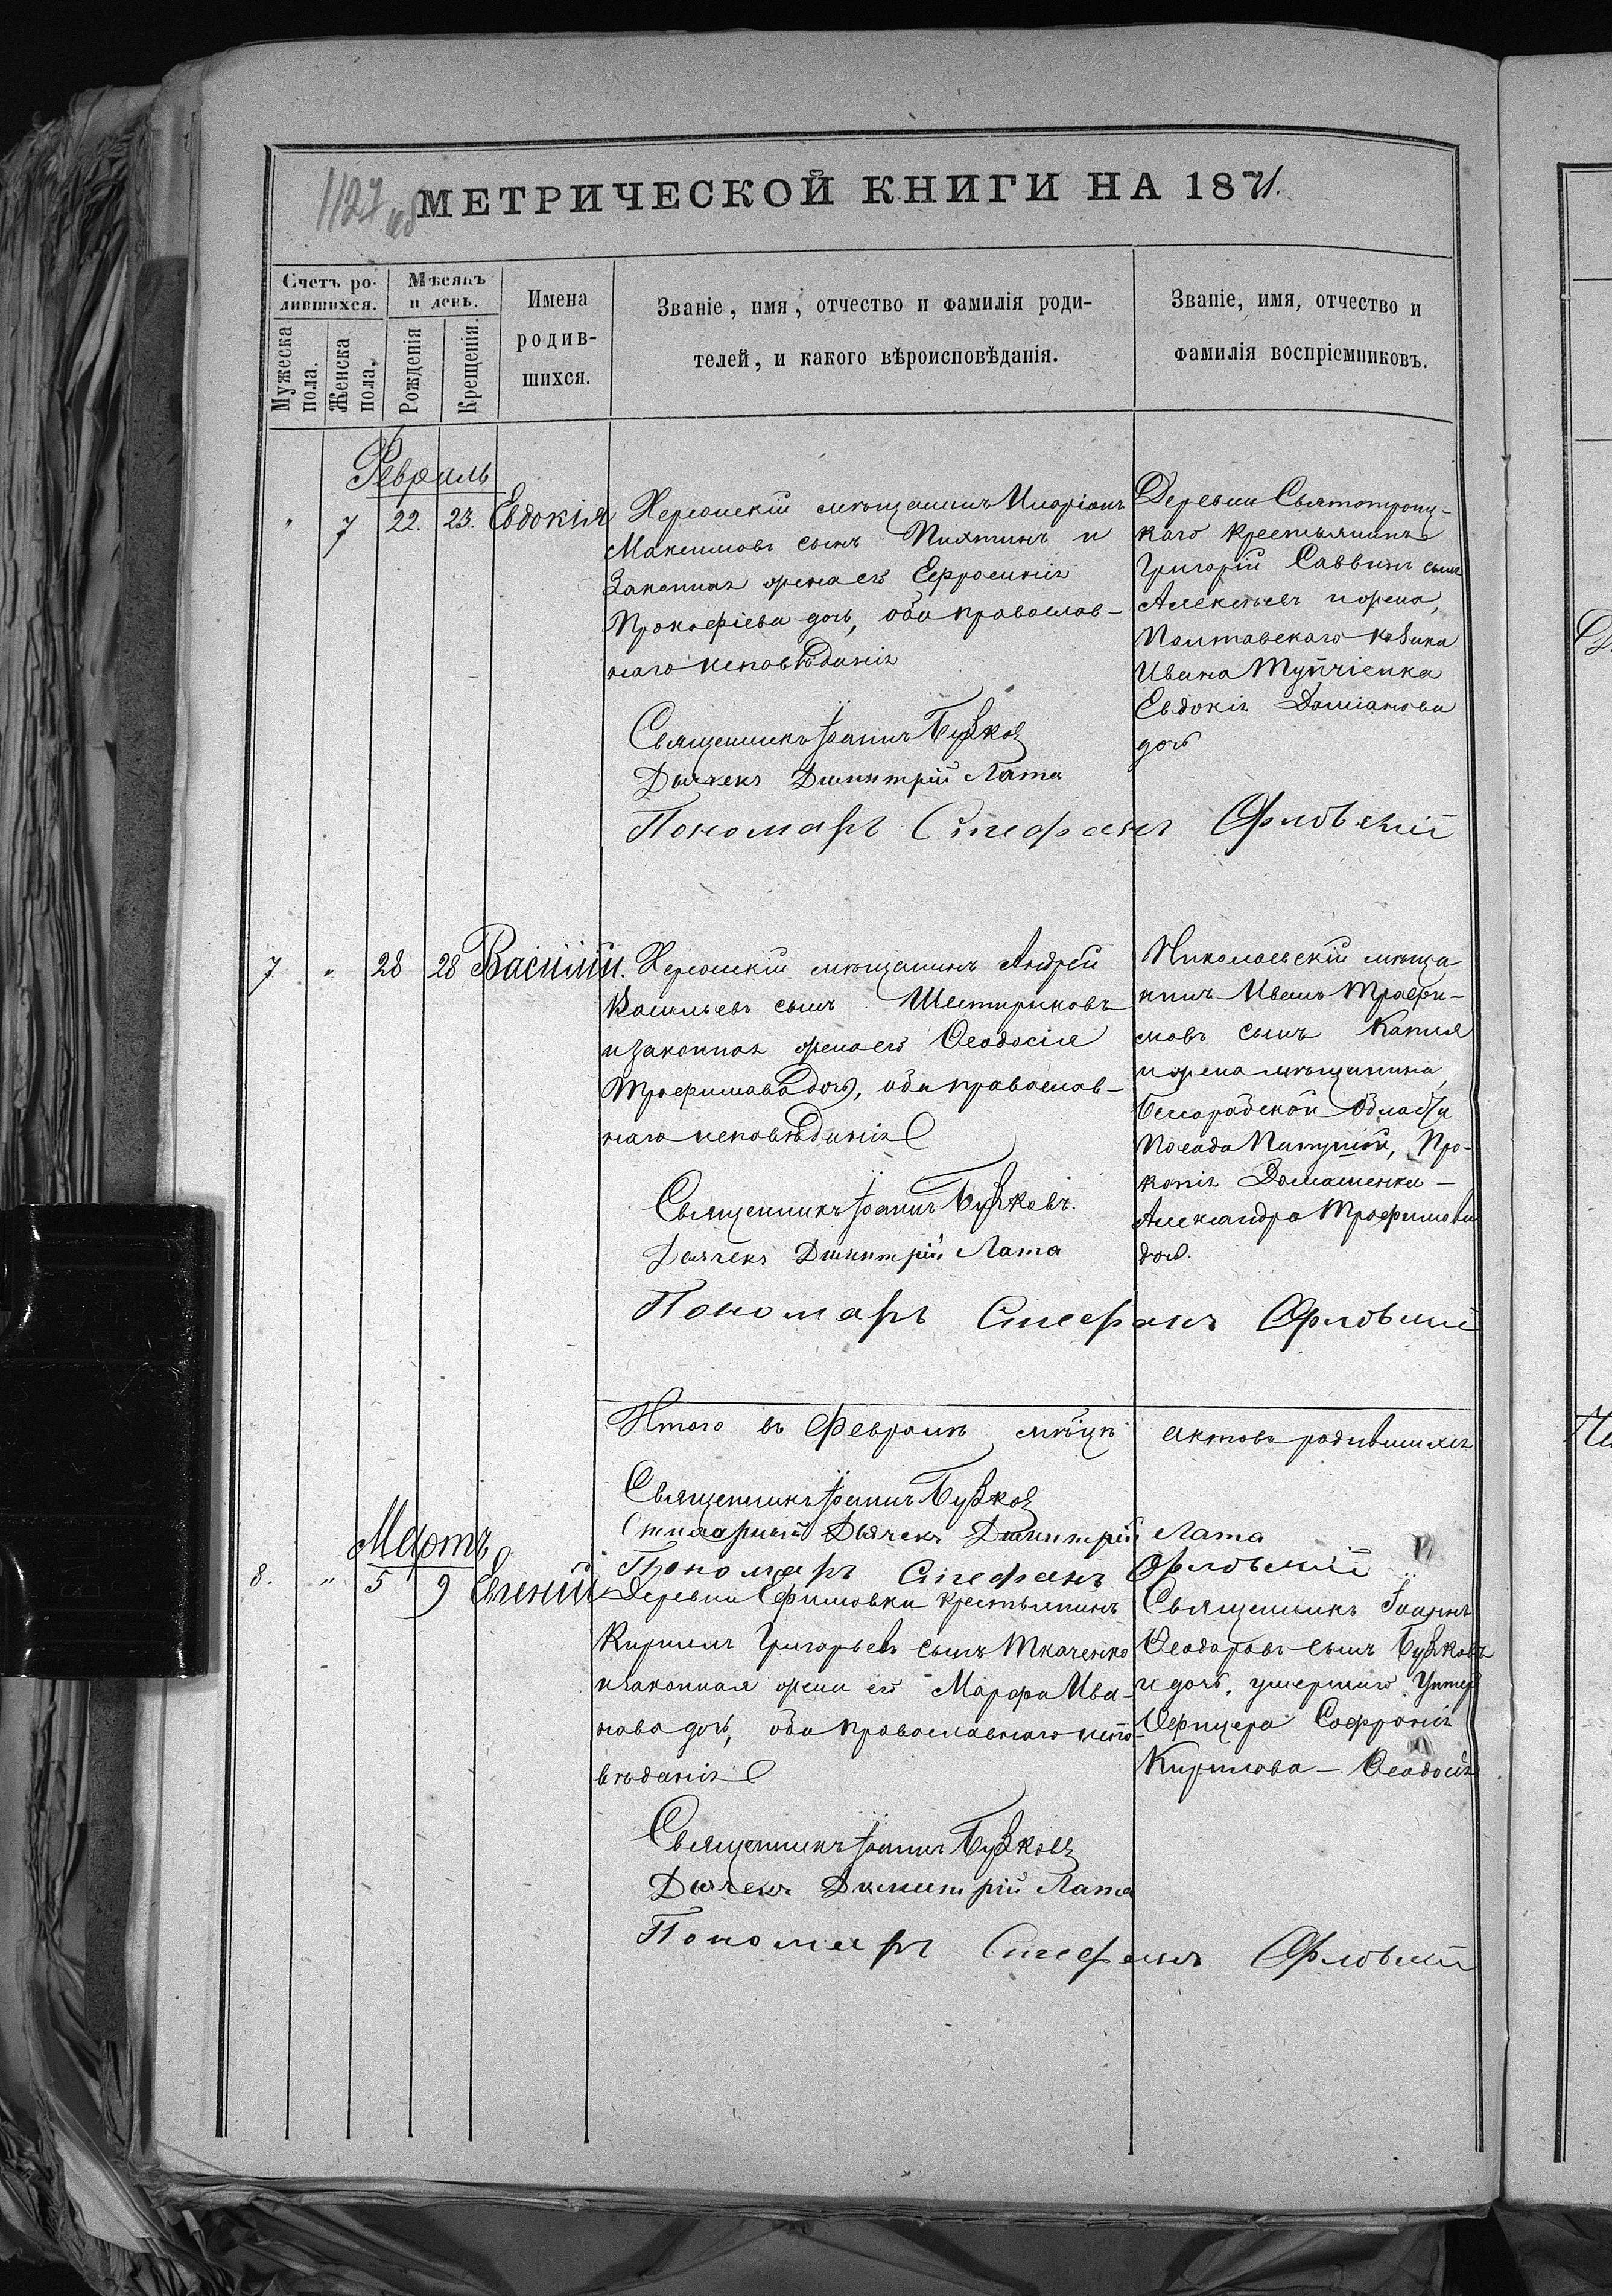 1127 об
МЕТРИЧЕСКОЙ КНИГИ НА 1871.
Счетъ ро-
дившихся.
Мѣсяцъ
и день.
Мужеска
пола.
Женска
пола.
Рожденія
Крещенія.
Имена
родив-
шихся.
Званіе, имя, отчество и фамилія роди-
телей, и какого вѣроисповѣданія.
Званіе, имя, отчество и
фамилія воспріемниковъ.
Февраль
" 7 22. 23. Евдокія
Херсонскій мѣщанинъ Иларіонъ
Максимовъ сынъ Пиятинъ и
Законная жена его Ефросинія
Прокофіева дочь, оба православ-
наго исповѣданія
Деревни Святотроиц-
каго крестьянинъ
Григорій Саввинъ сынъ
Алексѣевъ и жена,
Полтавскаго козака
Ивана Тупчіенка
Евдокія Даміанова
дочь
Священникъ Іоаннъ Бужков
Дьячекъ Димитрій Лата
Пономарь Стефанъ Орловскій
7 " 28 28 Василій.
Херсонскій мѣщанинъ Андрей
Васильевъ сынъ Шестириковъ
и законная жена его Ѳеодосія
Трофимова дочь, оба православ-
наго исповѣданія
Николаевскій мѣща-
нинъ Иванъ Трофи-
мовъ сынъ Капля
и жена мѣщанина,
Бессарабской Области
Посада Папушой, Про-
копія Домашенка —
Александра Трофимова
дочь.
Священникъ Іоаннъ Бужковъ.
Дьячекъ Димитрій Лата
Пономарь Стефанъ Орловскій
Итого въ Февралѣ мѣсяцѣ актовъ родившихся
Священникъ Іоаннъ Бужков
Дьячекъ Димитрій Лата
Пономарь Стефанъ Орловскій
Мартъ
8. " 5 9 Евгеній
Деревни Ефимовки крестьянинъ
Кириллъ Григорьевъ сынъ Ткаченко
и законная жена его Марфа Ива-
нова дочь, оба православнаго испо-
вѣданія
Священникъ Іоаннъ
Ѳеодоровъ сынъ Бужковъ
и дочь, умершаго Унтер
Офицера Софронія
Кирилова — Ѳеодосія
Священникъ Іоаннъ Бужковъ
Дьячекъ Димитрій Лата
Пономарь Стефанъ Орловскій